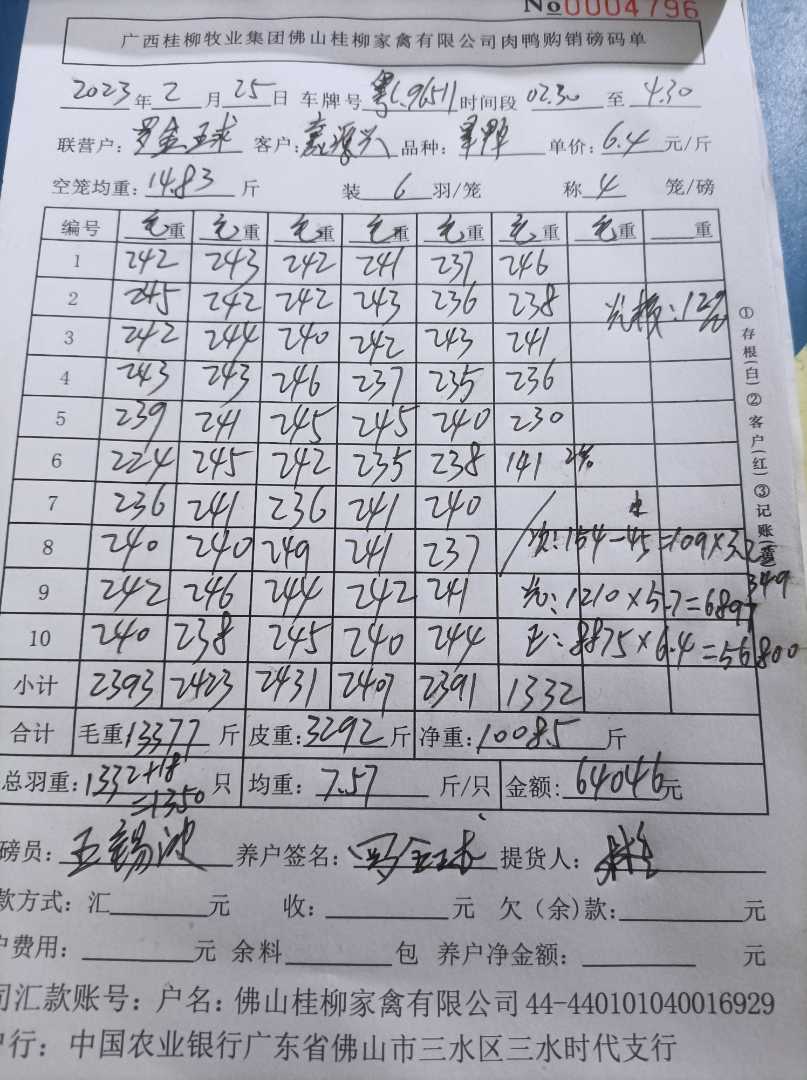 No 0004796
广西桂柳牧业集团佛山桂柳家禽有限公司肉鸭购销磅码单
2023年2月25日 车牌号 粤 96511 时间段 02.30 至 4.30
联营户: 罗金球 客户: 源兴 品种: 单价: 6.4 元/斤
空笼均重: 14.83 斤 装 6 羽/笼 称 4 笼/磅
编号 毛重 毛重 毛重 毛重 毛重 毛重 毛重 重
1 242 243 242 241 237 246
2 245 242 242 243 236 238
3 242 244 240 242 243 241
4 243 243 246 237 235 236
5 239 241 245 245 240 230
6 224 245 242 235 238 141
7 236 241 236 241 240
8 240 240 249 241 237 次:154-45=109×3.2
349
9 242 246 244 242 241 1210×5.7=6897
10 240 238 245 240 244 正:8875×6.4=56800
小计 2393 2423 2431 2407 2391 1332
合计 毛重 13377 斤 皮重: 3292 斤 净重: 10085 斤
总羽重: 1332+18=1350 只 均重: 7.57 斤/只 金额: 64046 元
磅员: 王锡波 养户签名: 提货人:
款方式: 汇 元 收: 元 欠(余)款: 元
户费用: 元 余料 包 养户净金额: 元
司汇款账号: 户名: 佛山桂柳家禽有限公司 44-440101040016929
户行: 中国农业银行广东省佛山市三水区三水时代支行
①存根(白)②客户(红)③记账(蓝)